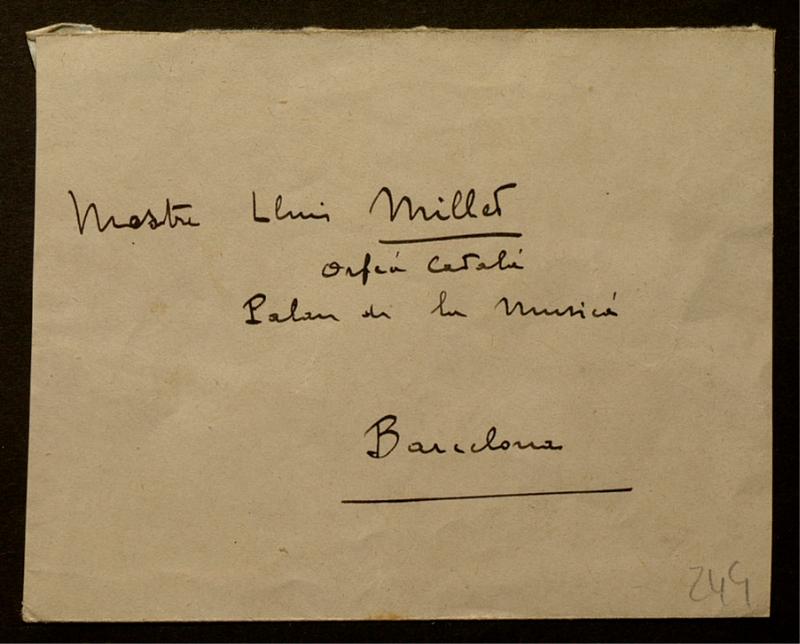 Mestre Lluis Millet
Orfeó Català
Palau de la Musica
Barcelona
249